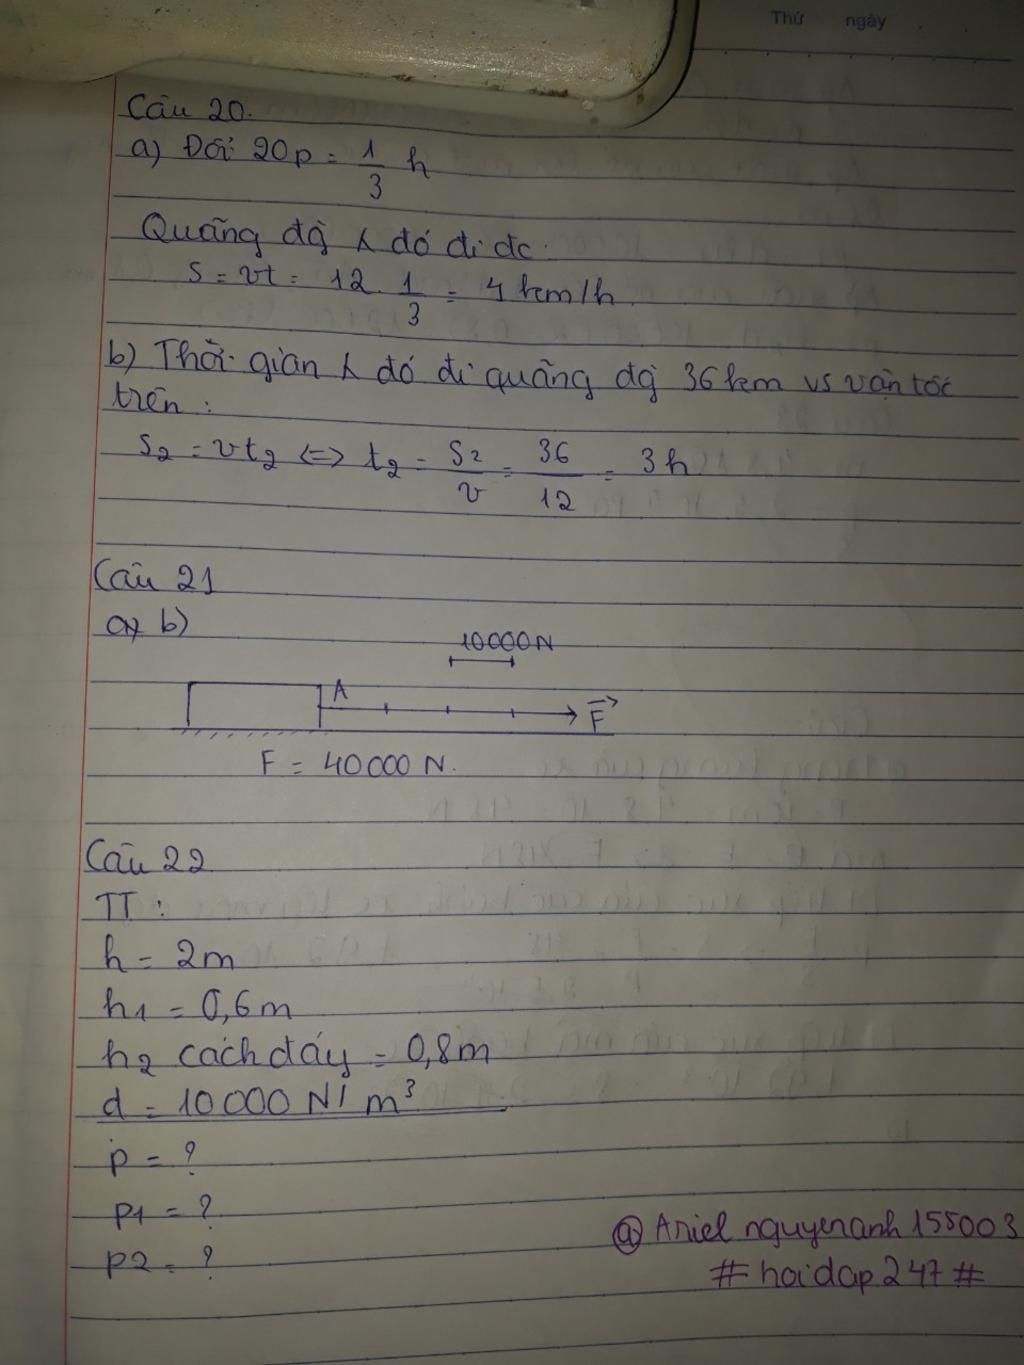 Thứ ngày
Câu 20.
a) Đổi 20p = 1/3 h
Quãng đg x đó đi đc:
S = vt = 12. 1/3 = 4 km/h
b) Thời gian x đó đi quãng đg 36km vs vận tốc
trên:
S2 = vt2 <=> t2 = S2/v = 36/12 = 3h
Câu 21
b)
10000N
A
F
F = 40000 N.
Câu 22
TT:
h = 2m
h1 = 0,6m
h2 cách đáy = 0,8m
d = 10000 N/m³
p = ?
p1 = ?
p2 = ?
@ Ariel nguyenanh 155003
# hoidap247 #